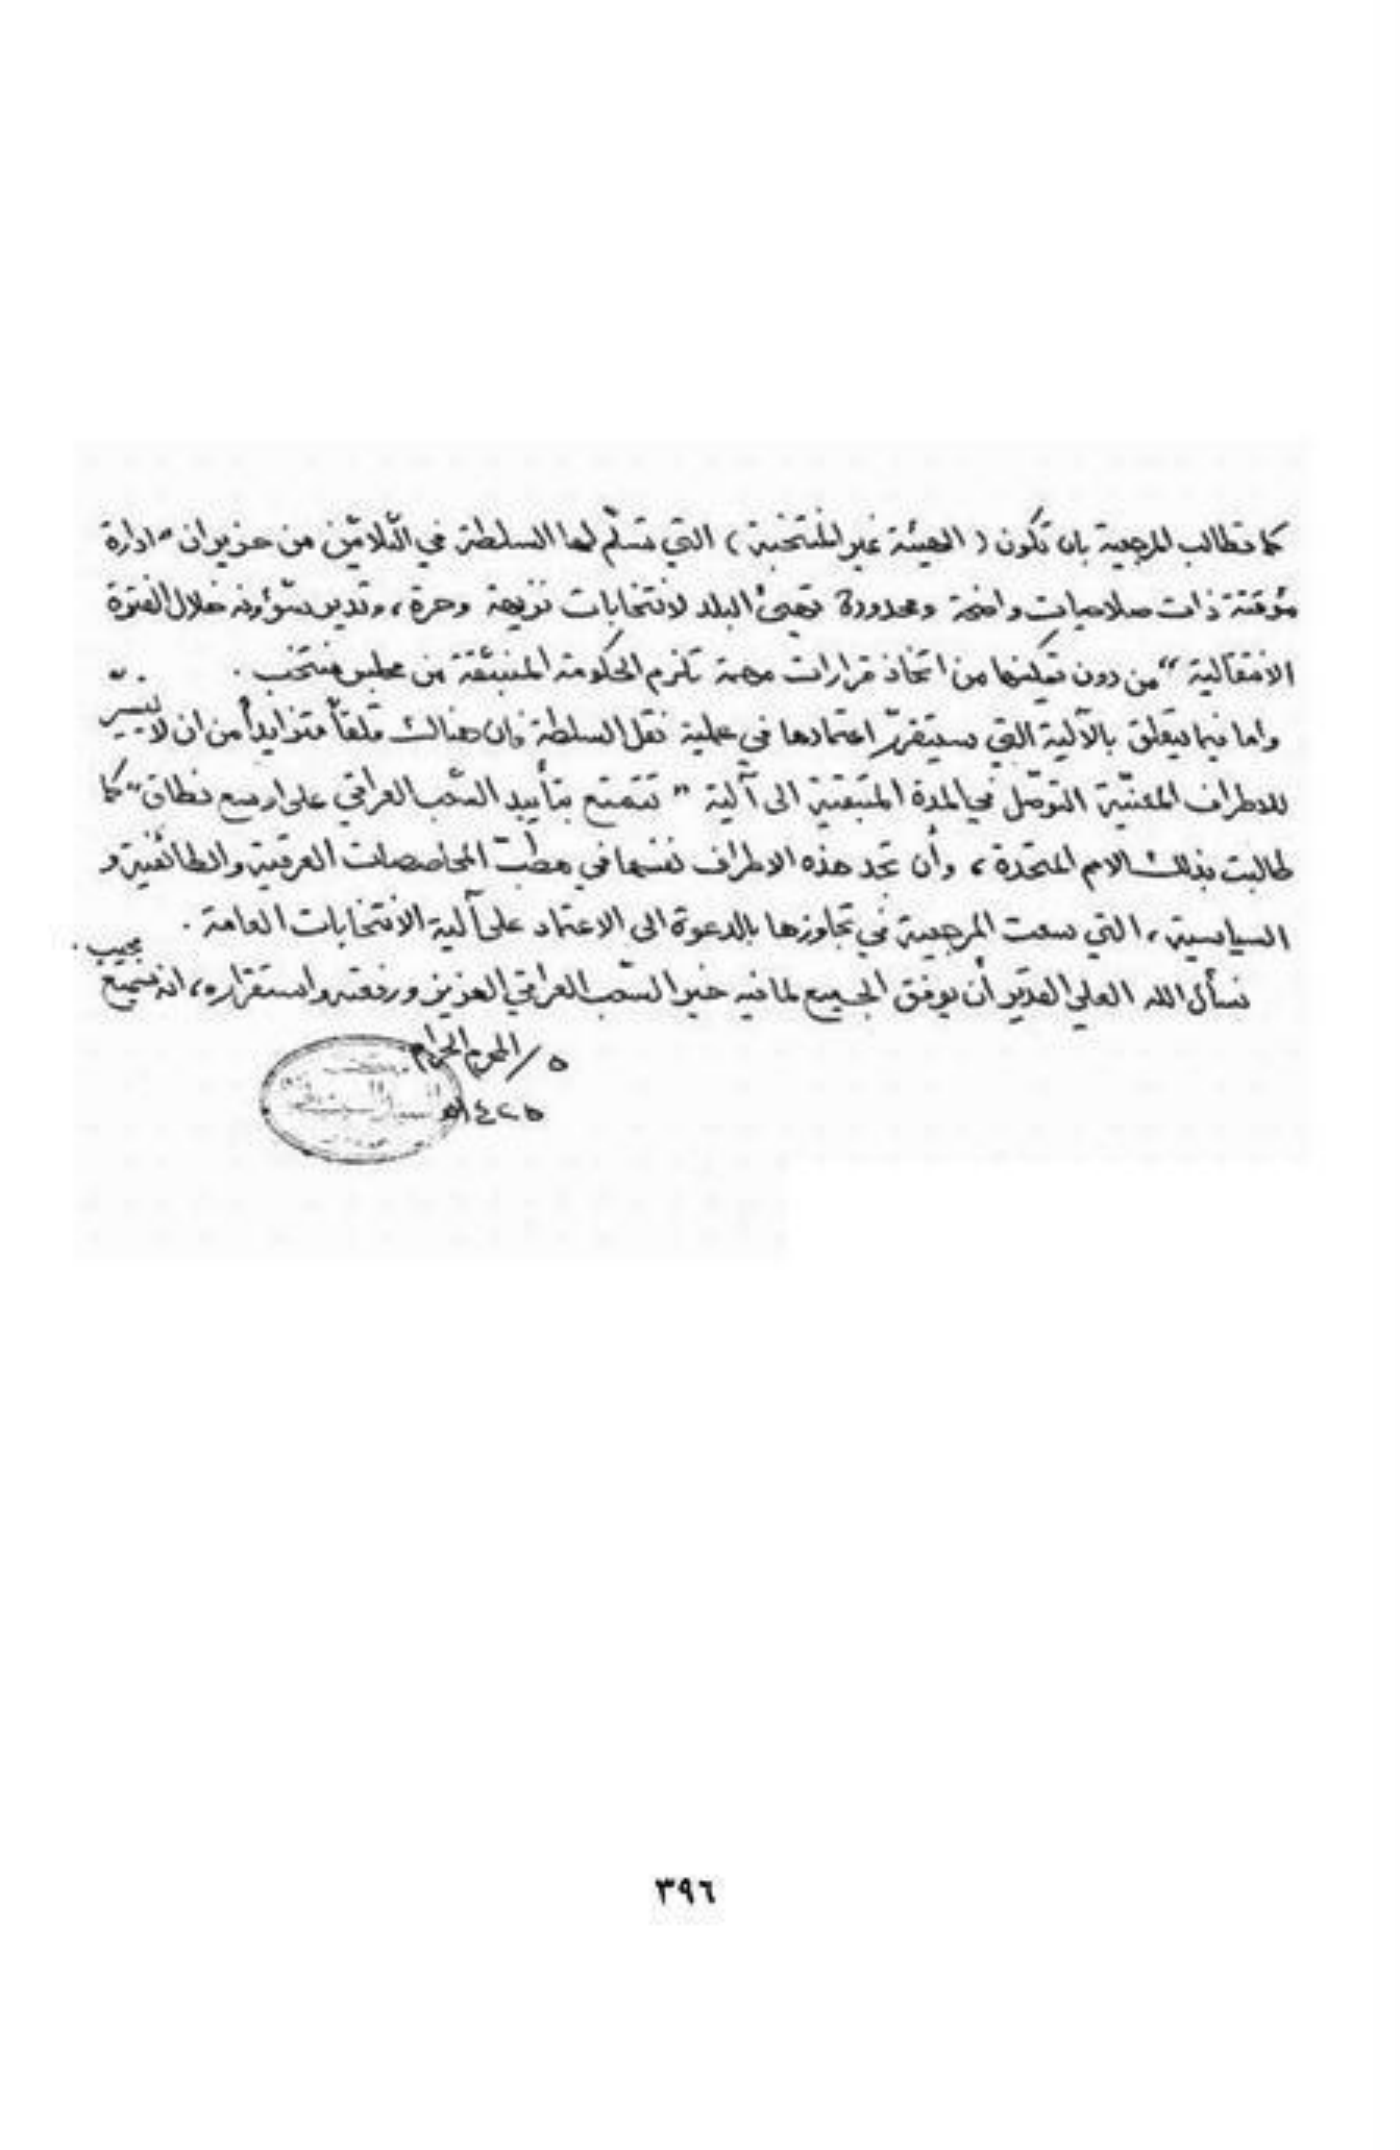 كما تطالب المرجعية بان تكون ( الهيئة غير المنتخبة ) التي تسلّم لها السلطة في الثلاثين من حزيران " ادارة
مؤقتة ذات صلاحيات واضحة ومحدودة تهيئ البلد لانتخابات نزيهة وحرة ، وتدير شؤونه خلال الفترة
الانتقالية " من دون تمكينها من اتخاذ قرارات مهمة تلزم الحكومة المنبثقة من مجلس منتخب .
واما فيما يتعلق بالآلية التي سيتقرّر اعتمادها في عملية نقل السلطة فان هنالك قلقاً متزايداً من ان لا يتيسر
للاطراف المعنيّة التوصّل في المدة المتبقية الى آلية " تتمتع بتأييد الشعب العراقي على اوسع نطاق " كما
طالبت بذلك الامم المتحدة ، وأن تجد هذه الاطراف نفسها في مطبّ المحاصصات العرقية والطائفية و
السياسية ، التي سعت المرجعية في تجاوزها بالدعوة الى الاعتماد على آلية الانتخابات العامة .
نسأل الله العلي القدير أن يوفق الجميع لما فيه خير الشعب العراقي العزيز ورفعته واستقراره ، انه سميع مجيب .
٥ / المحرم الحرام
١٤٢٥هـ
مكتب
السيد السيستاني
٣٩٦